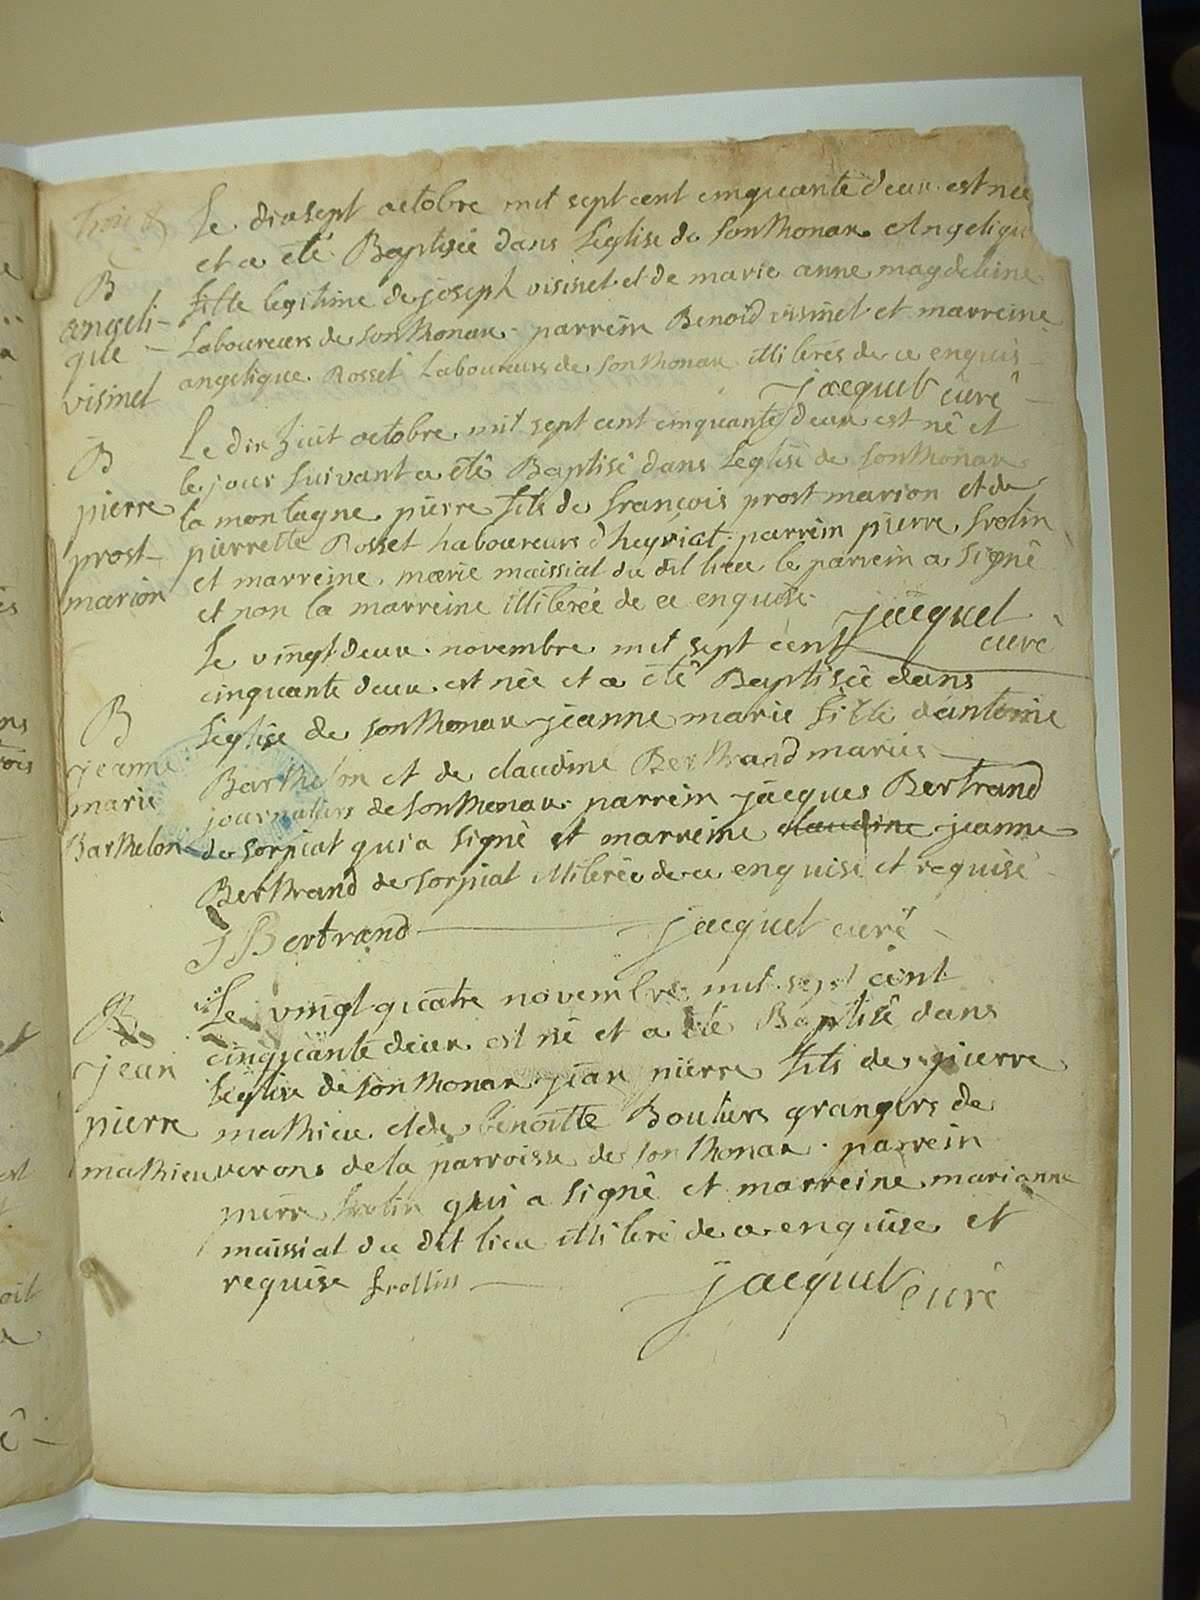 Le dixsept octobre mil sept cent cinquante deux est née
et a eté Baptisée dans Leglise de Sonthonax Angelique
B
fille legitime de joseph visinet et de marie anne magdeleine
angeli-
Laboureurs de Sonthonax parrein Benoid visinet et marreine
que
angelique Rosset Laboureurs de Sonthonax illiterés de ce enquis
visinet
jacquet curé
Le dix huit octobre mil sept cent cinquante deux est né et
B
le jour suivant a eté Baptisé dans Leglise de Sonthonax
pierre
la montagne pierre fils de françois prost marion et de
prost
pierrette Rosset Laboureurs d'heyriat parrein pierre frolin
et marreine marie maissiat du dit lieu le parrein a signé
marion
et non la marreine illiterée de ce enquise
jacquet
curé
Le vingt deux novembre mil sept cent
cinquante deux est née et a eté Baptisée dans
B
Leglise de Sonthonax jeanne marie fille dantoine
jeanne
Barthelon et de claudine Bertrand mariés
marie
journaliers de Sonthonax parrein jacques Bertrand
Barthelon
de Sorpiat qui a signé et marreine claudine jeanne
Bertrand de Sorpiat illiterée de ce enquise et requise
J Bertrand jacquet curé
Le vingt quatre novembre mil sept cent
B
cinquante deux est né et a eté Baptisé dans
jean
Leglise de Sonthonax jean pierre fils de pierre
pierre
mathieu et de benoitte Bouliers grangers de
mathieu
verons de la parroisse de Sonthonax parrein
pierre frolin qui a signé et marreine marianne
maissiat du dit lieu illiteré de ce enquise et
requise frollin
jacquet curé